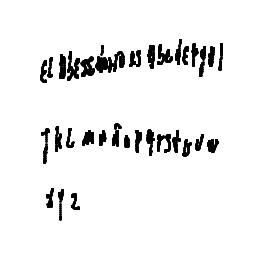 El Abecedario es abcdefghi
jkl mnñopqrstuvw
xyz